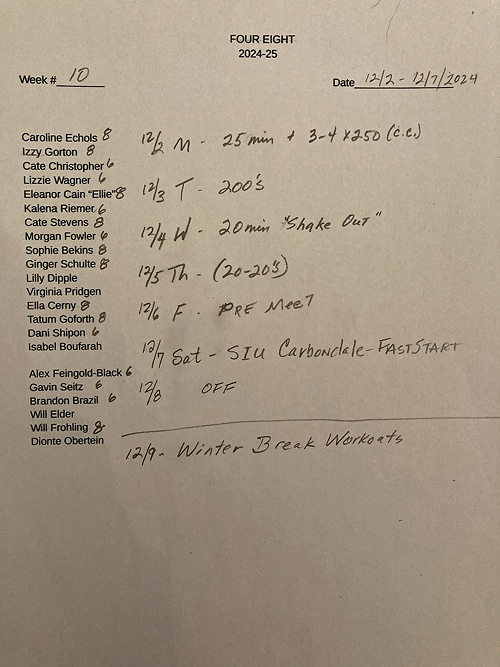 FOUR EIGHT
2024-25
Week # 10
Date 12/2 - 12/7/2024
Caroline Echols 8
Izzy Gorton 8
Cate Christopher 6
Lizzie Wagner 6
Eleanor Cain "Ellie" 8
Kalena Riemer 6
Cate Stevens 8
Morgan Fowler 6
Sophie Bekins 8
Ginger Schulte 8
Lilly Dipple
Virginia Pridgen
Ella Cerny 8
Tatum Goforth 8
Dani Shipon 6
Isabel Boufarah
Alex Feingold-Black 6
Gavin Seitz 6
Brandon Brazil 6
Will Elder
Will Frohling 8
Dionte Obertein
12/2 M - 25 min + 3-4 x 250 (c.c.)
12/3 T - 200's
12/4 W - 20min "Shake Out"
12/5 Th - (20-20's)
12/6 F - PRE MeeT
12/7 Sat - SIU Carbondale - FASTSTART
12/8 OFF
12/9 - Winter Break Workouts